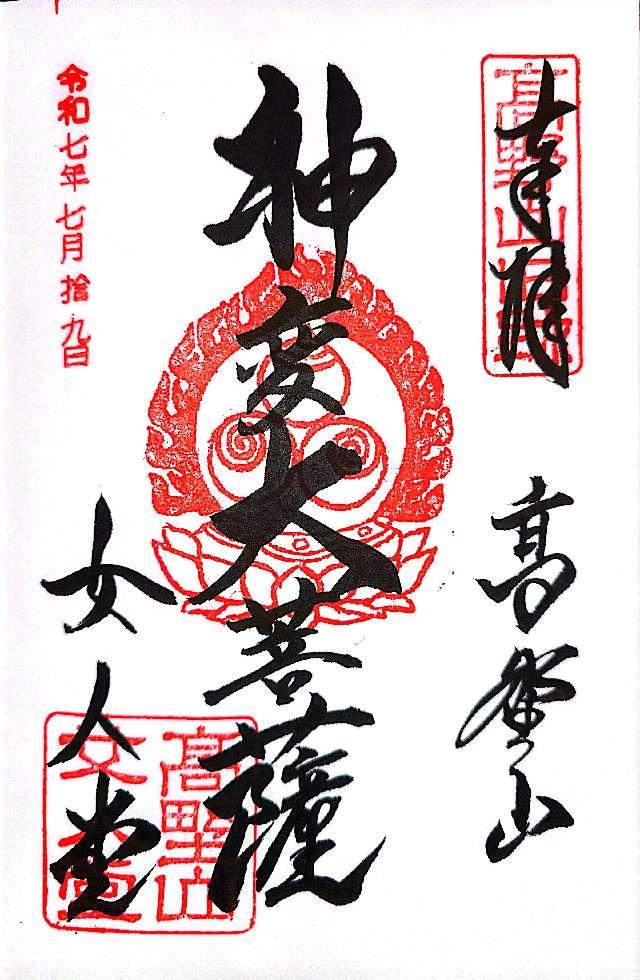 奉拝
高野山
神変大菩薩
女人堂
令和七年七月拾九日
高野山
女人堂